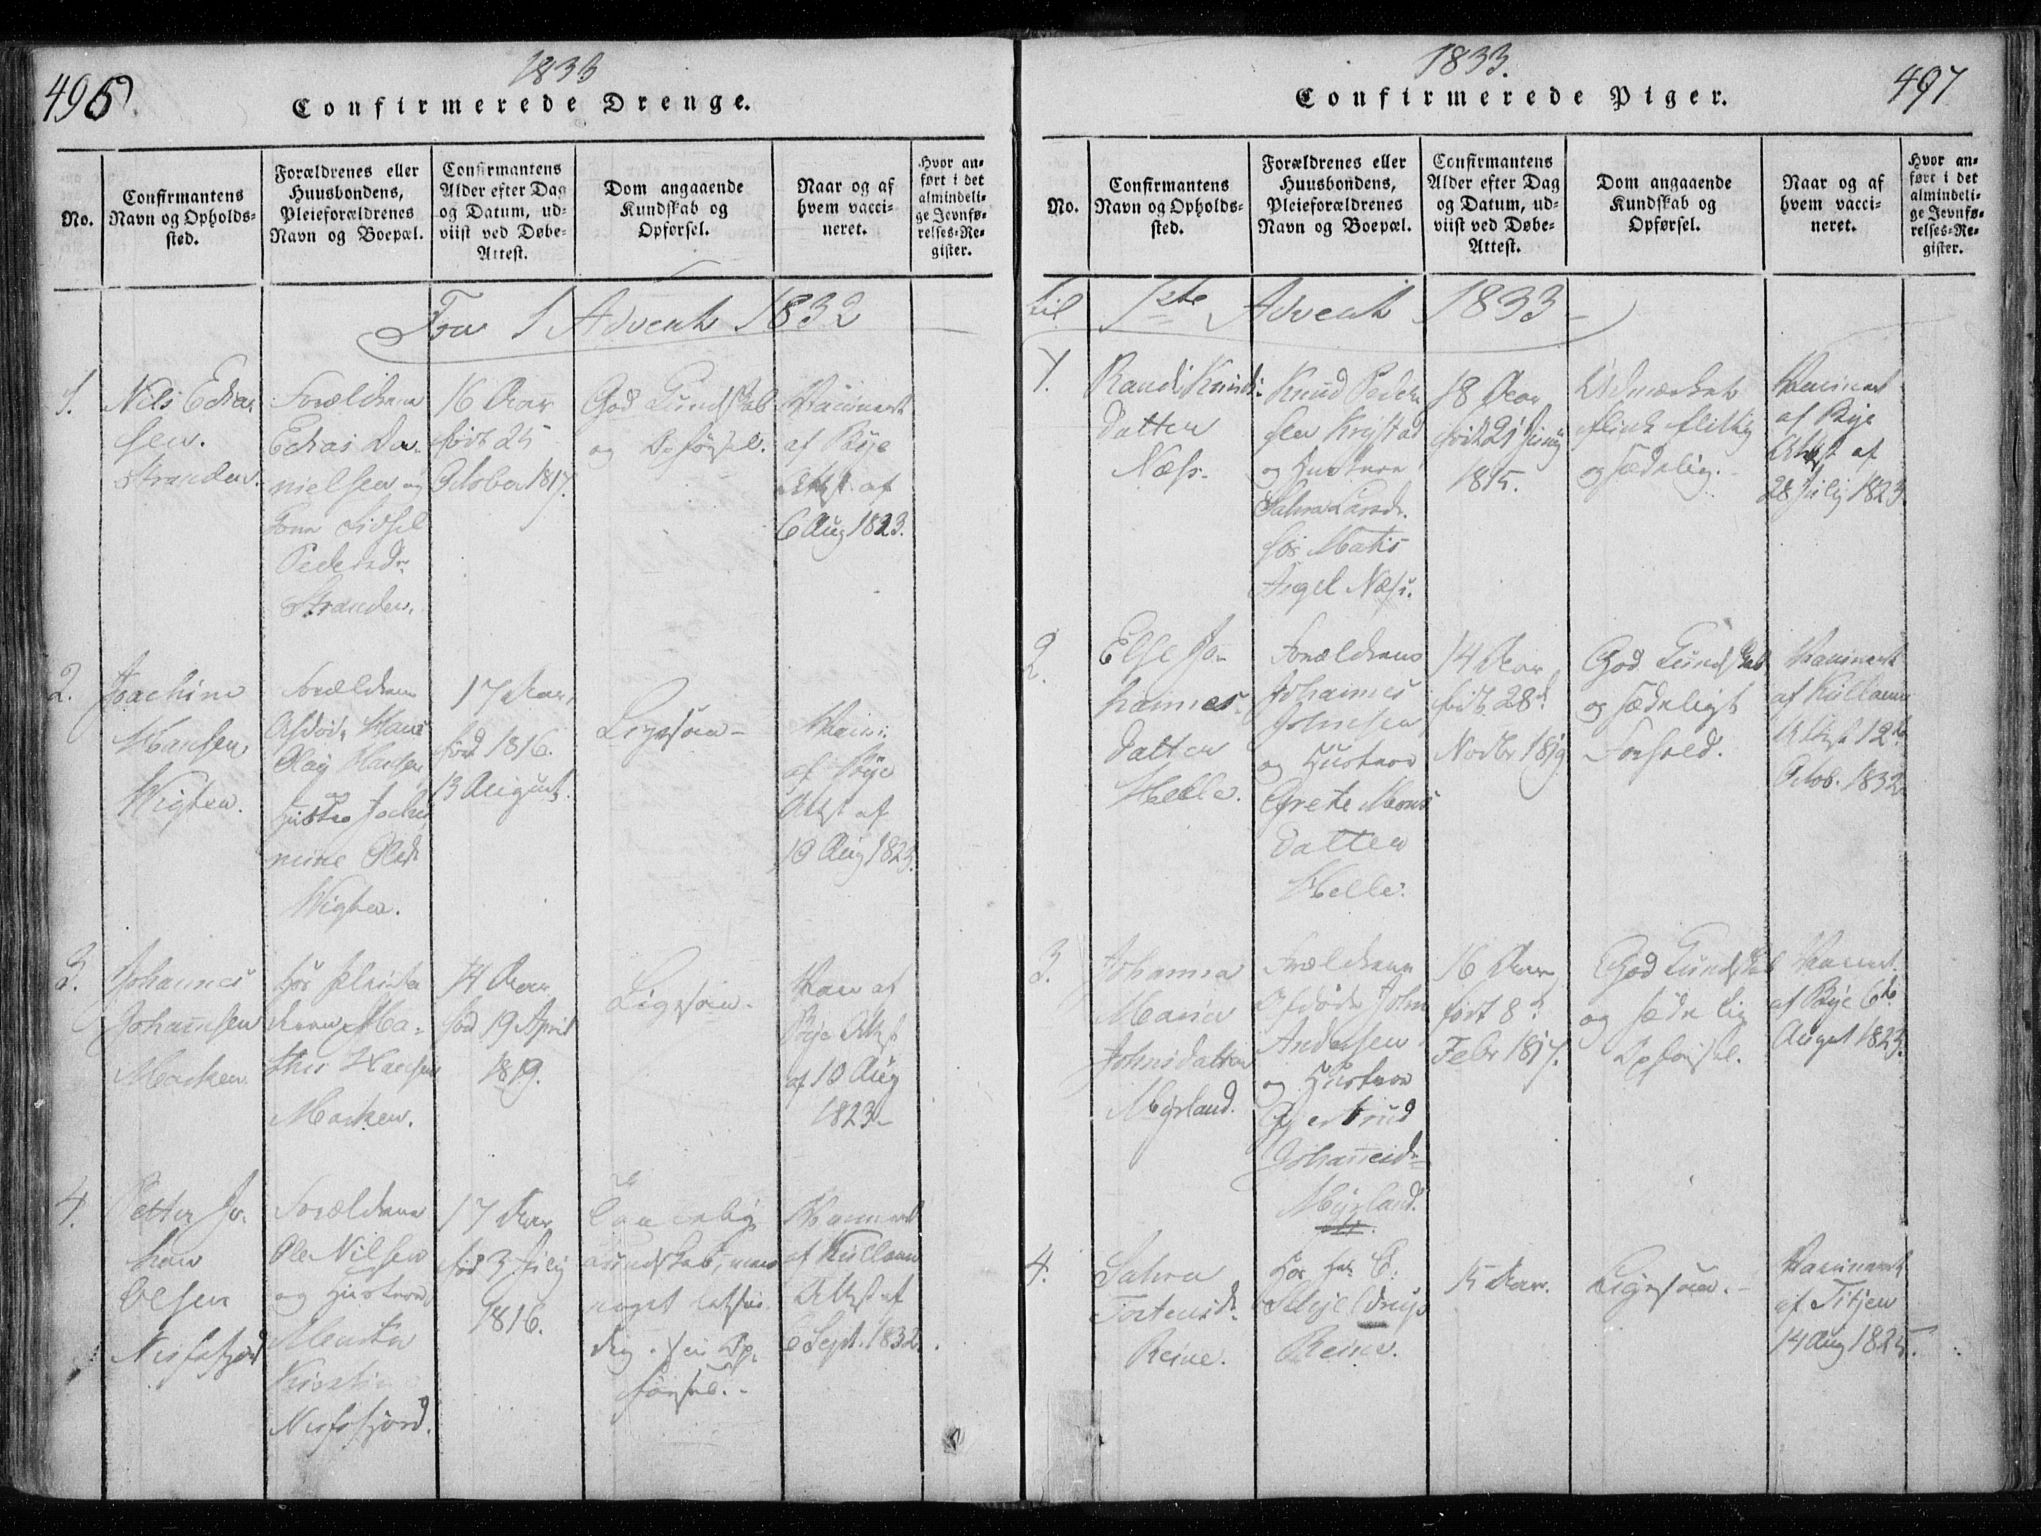 496.
1833
Confirmerede Drenge.
No.
Confirmantens
Navn og Opholds-
sted.
Forældrenes eller
Huusbondens,
Pleieforældrenes
Navn og Boepæl.
Confirmantens
Alder efter Dag
og Datum, ud-
viist ved Døbe-
Attest.
Dom angaaende
Kundskab og
Opførsel.
Naar og af
hvem vacci-
neret.
Hvor an-
ført i det
almindeli-
ge Jevnfø-
relses-Re-
gister.
Fra 1 Advent 1832
1.
Nils
sen.
Stranden.
Forældrene
nielsen og
Pedersdr.
Stranden.
16 Aar
født 25
October 1817.
God Kundskab
og Opførsel.
Vaccineret
af Bye
Attest af
6 Aug 1823.
2.
Joachim
Hansen
Forældrene
Afdøde Hans
Hansen
og
17 Aar
fød 1816.
13 August.
Ligesaa
Vacci:
af Bye
Attest af
10 Aug 1823.
3.
Johannes
Johannsen
Marken
hos
Hansen
Marken.
14 Aar
fød 19 April
1819.
Ligesaa.
Vacc af
Bye Attest
af 10 Aug
1823
4.
Petter Jo-
han
Olsen
Nesfsfjord
Forældrene
Ole Nilsen
og Hustrue
Nesfsfjord.
17 Aar
fød 3 July
1816.
Kundskab, men
noget letsin-
dig i sin Op-
førsel.
Vaccineret
af Kullann
Attest af
6 Sept. 1832.
1833.
497
Confirmerede Piger.
No.
Confirmantens
Navn og Opholds-
sted.
Forældrenes eller
Huusbondens,
Pleieforældrenes
Navn og Boepæl.
Confirmantens
Alder efter Dag
og Datum, ud-
viist ved Døbe-
Attest.
Dom angaaende
Kundskab og
Opførsel.
Naar og af
hvem vacci-
neret.
Hvor an-
ført i det
almindeli-
ge Jevnfø-
relses-Re-
gister.
til 1ste Advent 1833
1.
Randi Knuds-
datter
Næss.
Knud Peder
sen
og Hustrue
hos Mathis
Næss.
18 Aar
født 21 Juny
1815.
Udmærket
flink flittig
og sædelig.
Vaccineret
af Bye
Attest af
28 July 1823.
2.
Else Jo-
hannes-
datter
Helle.
Forældrene
Johannes
Johnsen
og Hustrue
Grete Mons
datter
Helle.
14 Aar
født 28de
Novbr 1819.
God Kundskab
og sædeligt
Forhold.
Vaccineret
af Kullann
Attest 12te
Octob. 1832
3.
Johanna
Maria
Johnsdatter
Myrland.
Forældrene
Afdøde John
Andersen
og Hustrue
Gjertrud
Myrland.
16 Aar
født 8de
Febr 1817.
God Kundskab
og sædelig
Opførsel.
Vaccinert
af Bye 6te
August 1823.
4.
Reine.
Hos Hr. E:
Reine.
15 Aar.
Ligesaa.
Vaccineret
af
14 Aug 1825.